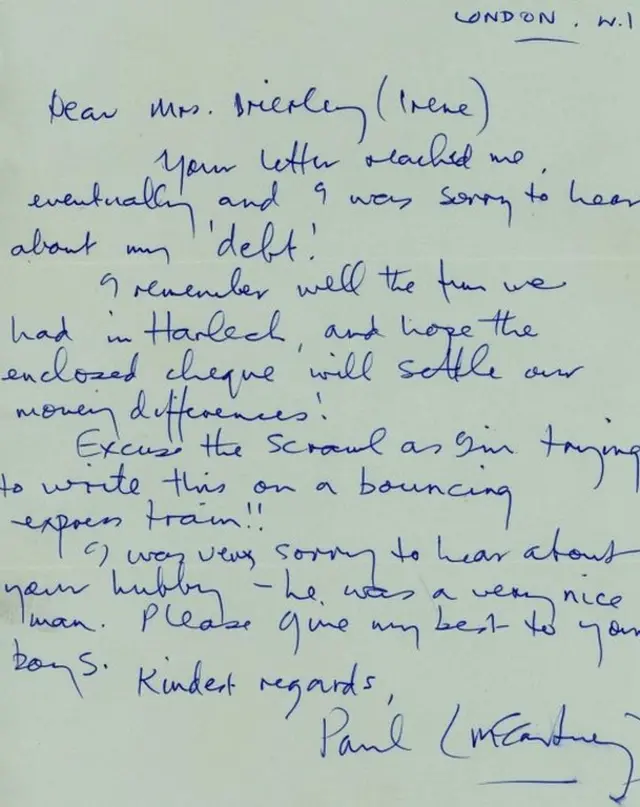 LONDON. W.1
Dear Mrs. Brierley (Irene)
Your letter reached me,
eventually and I was sorry to hear
about my 'debt'!
I remember well the fun we
had in Harlech, and hope the
enclosed cheque will settle our
money differences!
Excuse the scrawl as I'm trying
to write this on a bouncing
express train!!
I was very sorry to hear about
your hubby – he was a very nice
man. Please give my best to your
boys.
Kindest regards,
Paul (McCartney)